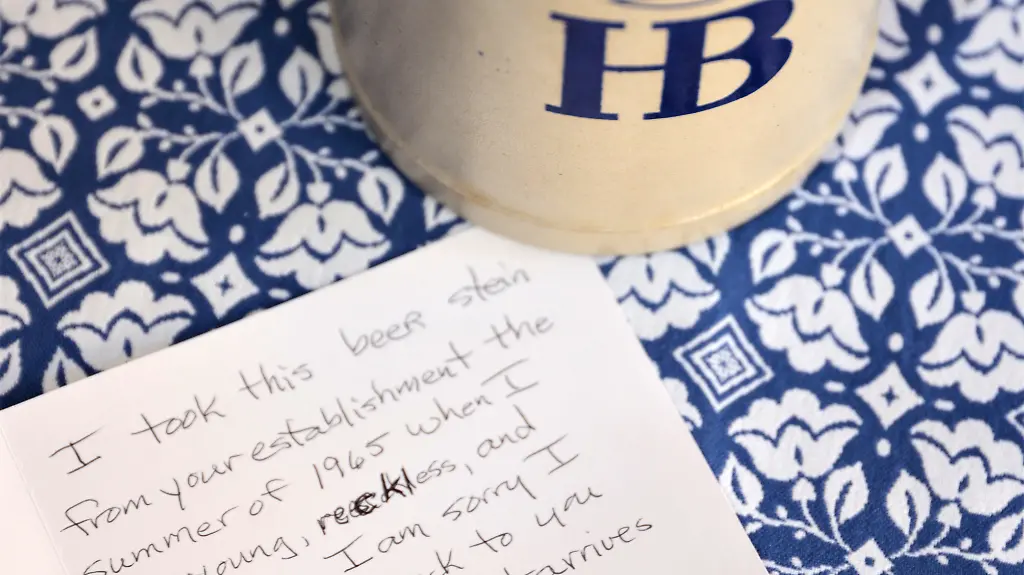 HB
I took this beer stein
from your establishment the
summer of 1965 when I
young, reckless, and
I am sorry I
to you
arrives